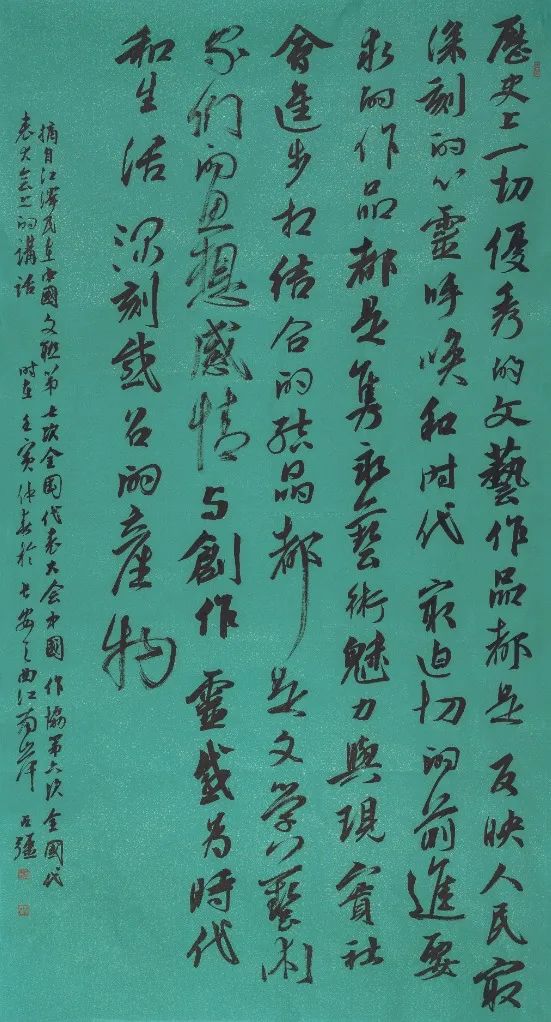 歷史上一切優秀的文藝作品都是反映人民最
深刻的心靈呼喚和时代最迫切的前進要
求的作品都是隽永藝術魅力與現實社
會進步相结合的结晶都是文学藝術
家們的思想感情与創作靈感为時代
和生活深刻感召的產物
摘自江澤民在中國文联第七次全國代表大会中國作協第六次全國代
表大会上的講话
时在壬寅仲春於长安之曲江南岸